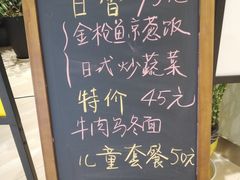 金枪鱼京葱饭
日式炒蔬菜
特价 45元
牛肉乌冬面
儿童套餐50元